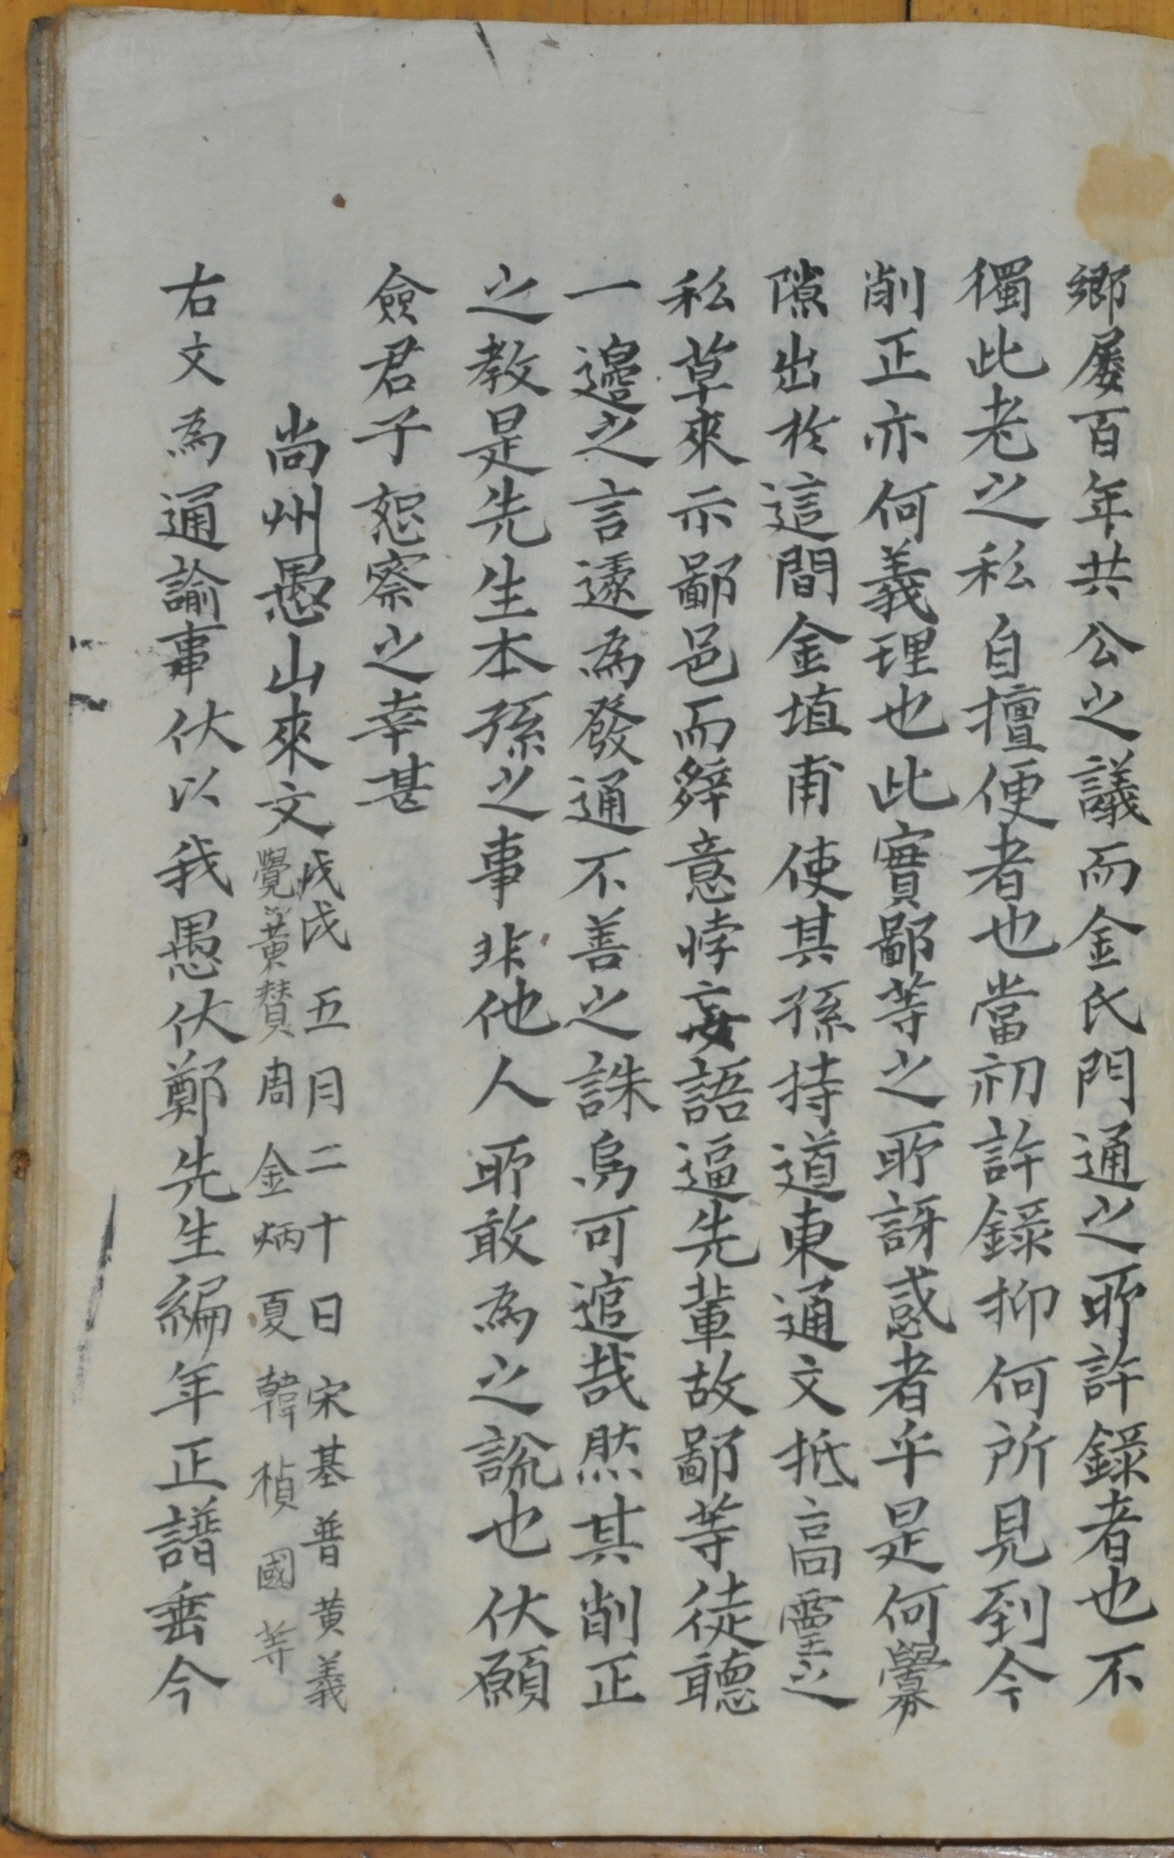 鄉屡百年共公之議而金氏門通之所許錄者也不
獨此老之私自擅便者也當初許錄抑何所見到今
削正亦何義理也此實鄙等之所訝惑者乎是何釁
隙出於這間金埴甫使其孫持道東通文抵高靈之
私草來示鄙邑而辭意悖妄語逼先輩故鄙等徒聽
一邊之言遽為發通不善之誅烏可逭哉然其削正
之教是先生本孫之事非他人所敢為之說也伏願
僉君子恕察之幸甚
尚州愚山來文戊戌五月二十日宋基普黃義
覺黃賛周金炳夏韓楨國等
右文為通諭事伏以我愚伏鄭先生編年正譜垂今